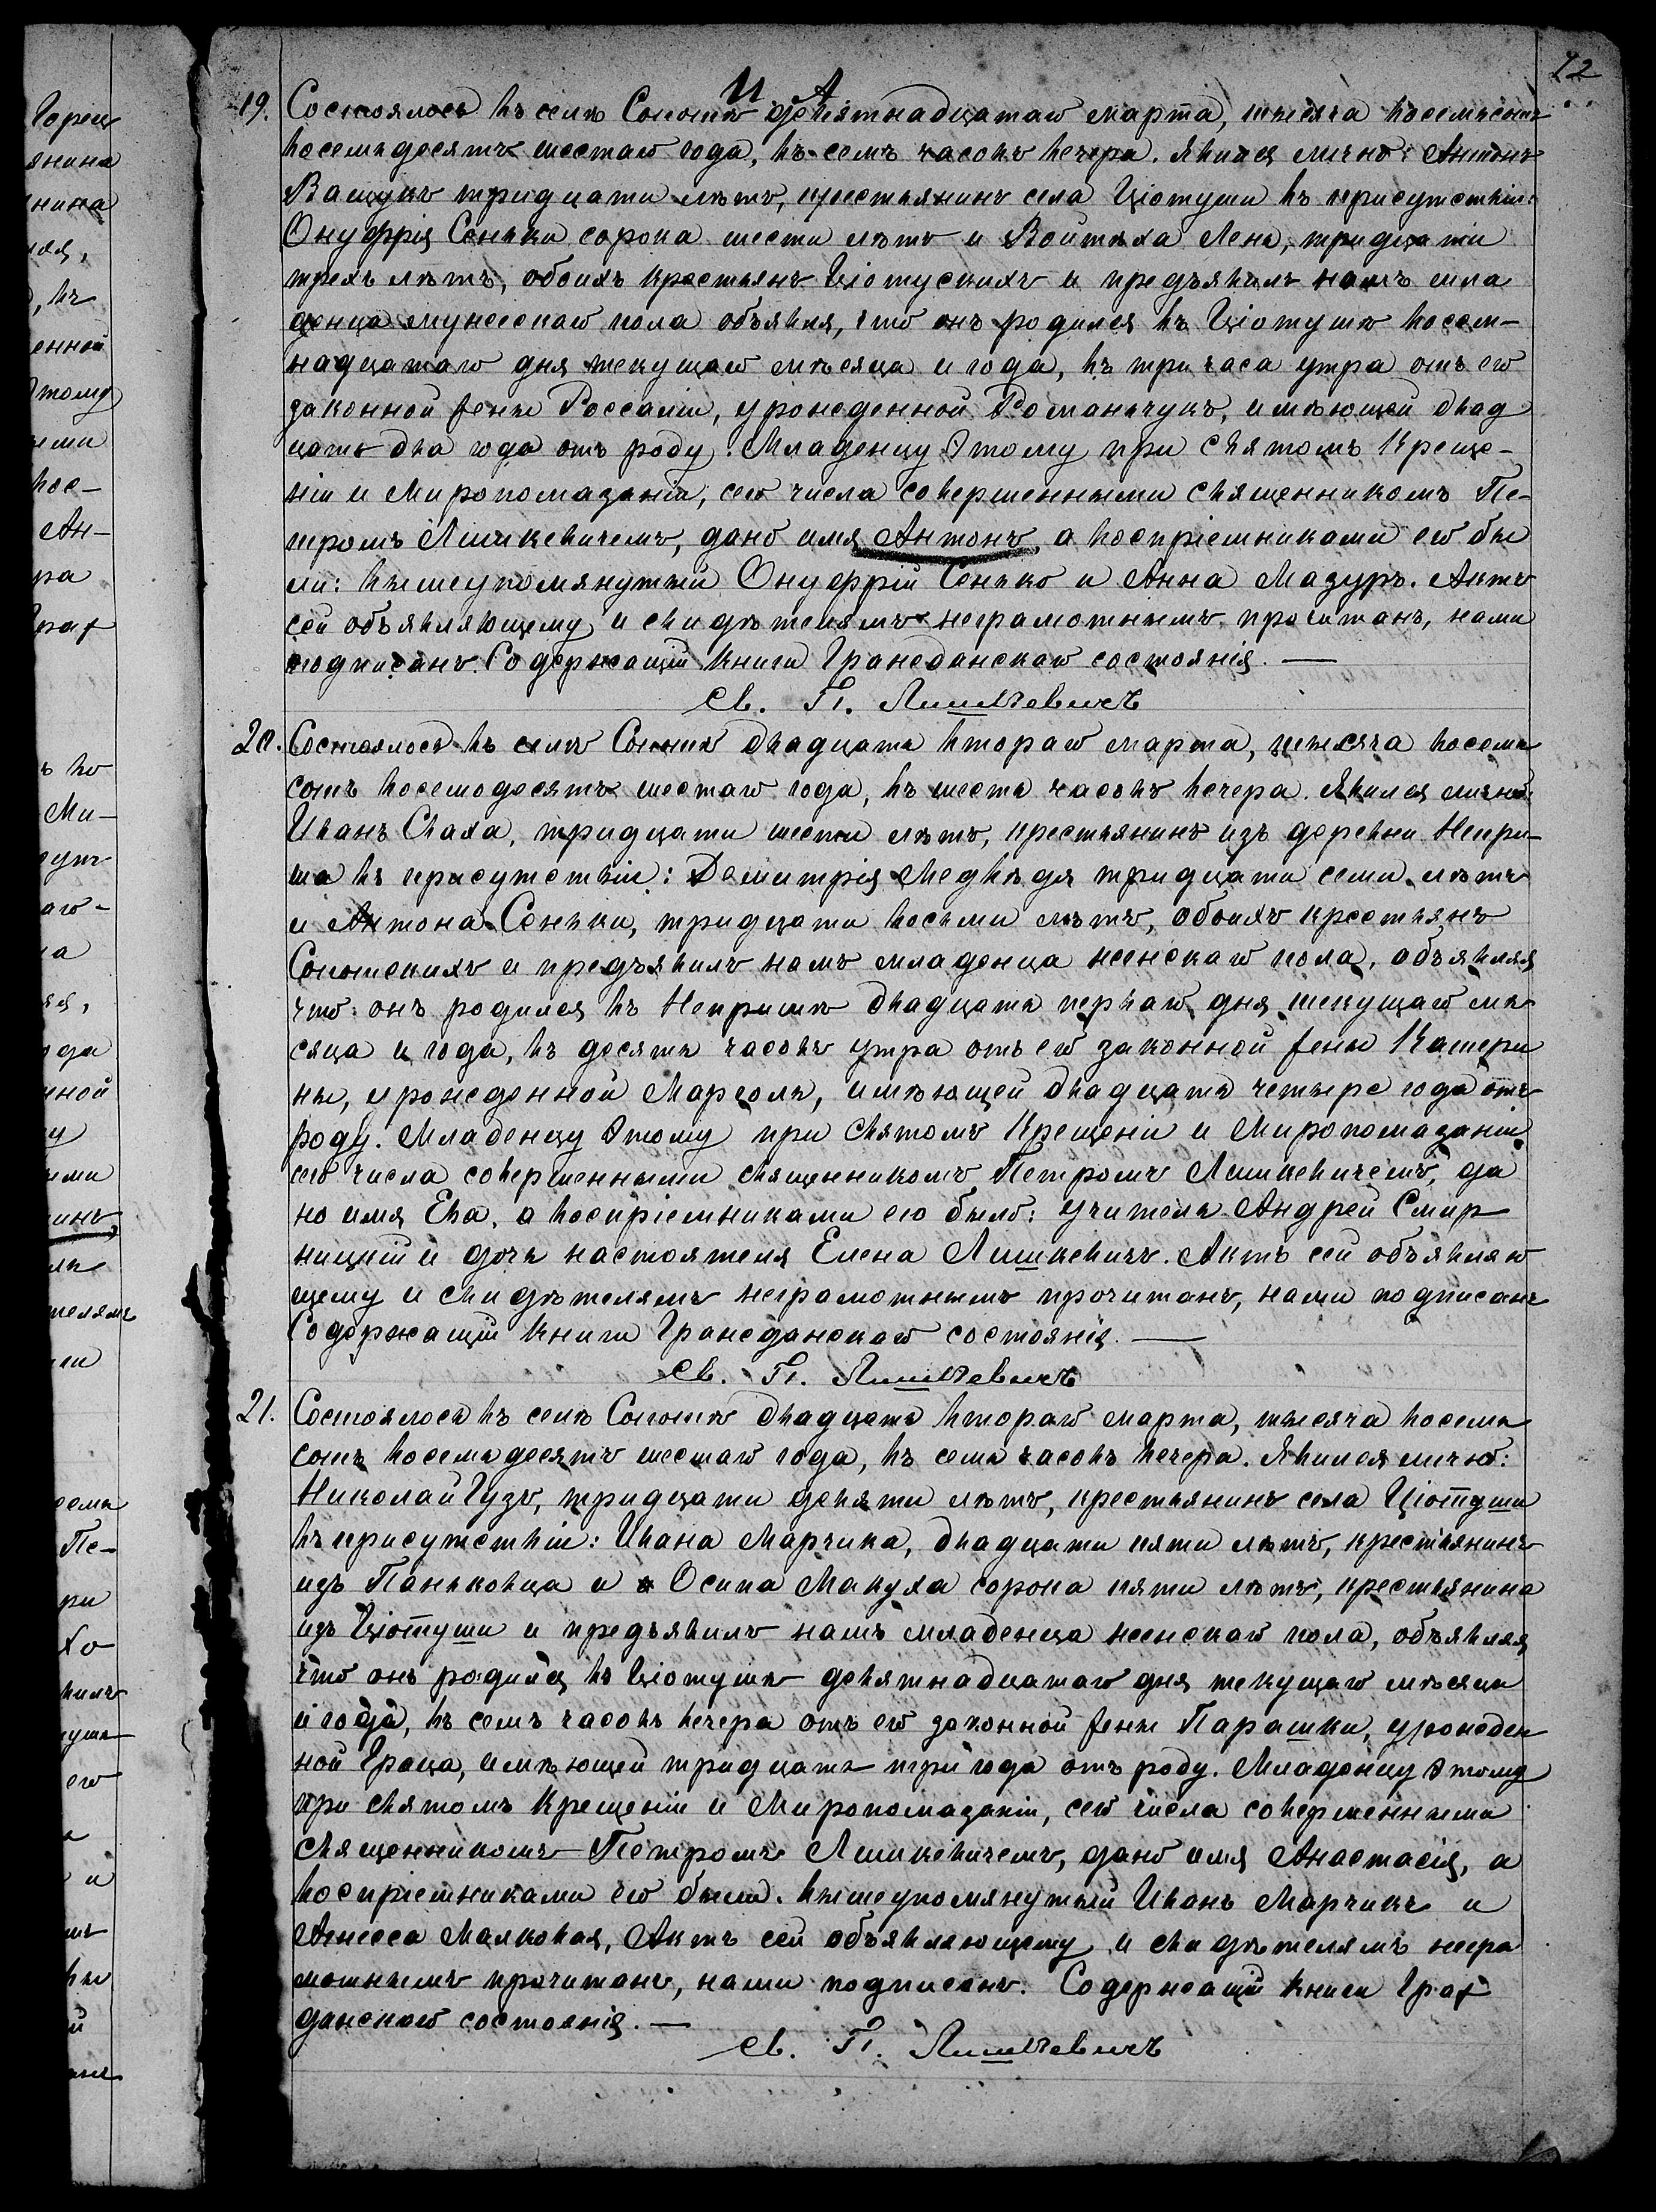 22
И А
19. Состоялось въ селѣ Сопотѣ девятнадцатаго марта, тысяча восемьсотъ
восемьдесятъ шестаго года, въ семь часовъ вечера. Явился лично: Антонъ
Ващукъ тридцати лѣтъ, крестьянинъ села Ціотуши въ присутствіи:
Онуфрія Сенька сорока шести лѣтъ и Войтѣха Лень, тридцати
трехъ лѣтъ, обоихъ крестьянъ Ціотускихъ и предъявилъ намъ мла
денца мужескаго пола объявля, что онъ родился въ Ціотушѣ восем-
надцатаго дня текущаго мѣсяца и года, въ три часа утра отъ его
законной жены Россаліи, урожденной Романьчукъ, имѣющей двад
цать два года отъ роду. Младенцу этому при Святомъ Креще-
ніи и Миропомазаніи, сего числа совершенными священникомъ Пе-
тромъ Лишкевичемъ, дано имя Антонъ, а воспріемниками его бы
ли: вышеупомянутый Онуфрій Сенько и Анна Мазуръ. Актъ
сей объявляющему и свидѣтелямъ неграмотнымъ прочитанъ, нами
подписанъ. Содержащій книги Гражданскаго состоянія. —
Св. П. Лишкевичъ
20. Состоялось въ селѣ Сопотѣ двадцать втораго марта, тысяча восемь
сотъ восемодесятъ шестаго года, въ шесть часовъ вечера. Явился лично:
Иванъ Сваха, тридцати шести лѣтъ, крестьянинъ изъ деревни Непри-
ша въ присутствіи: Демитрія Медвѣдя тридцати семи лѣтъ
и Антона Сеньки, тридцати восьми лѣтъ, обоихъ крестьянъ
Сопотскихъ и предъявилъ намъ младенца женскаго пола, объявляя
что онъ родился въ Непришѣ двадцать перваго дня текущаго мѣ
сяца и года, въ десять часовъ утра отъ его законной жены Катери
ны, урожденной Марголь, имѣющей двадцать четыре года отъ
роду. Младенцу этому при Святомъ Крещеніи и Миропомазаніи
сего числа совершенными священникомъ Петромъ Лишкевичемъ, да
но имя Ева, а воспріемниками его было: учитель Андрей Смир
ницкій и дочь настоятеля Елена Лишкевичъ. Актъ сей объявляю
щему и свидѣтелямъ неграмотнымъ прочитанъ, нами подписанъ
Содержащій книги Гражданскаго состоянія. —
Св. П. Лишкевичъ
21. Состоялось въ селѣ Сопотѣ двадцать втораго марта, тысяча восемь
сотъ восемьдесятъ шестаго года, въ семь часовъ вечера. Явился лично:
Николай Гузъ, тридцати девяти лѣтъ, крестьянинъ села Ціотуши
въ присутствіи: Ивана Марчика, двадцати пяти лѣтъ, крестьянинъ
изъ Паньковца и Осипа Макуха сорока пяти лѣтъ, крестьянина
изъ Ціотуши и предъявилъ намъ младенца женскаго пола, объявляя
что онъ родился въ Ціотушѣ девятнадцатаго дня текущаго мѣсяца
и года, въ семь часовъ вечера отъ его законной жены Парашки, урожден
ной Граца, имѣющей тридцать три года отъ роду. Младенцу этому
при Святомъ Крещеніи и Миропомазаніи, сего числа совершенными
священникомъ Петромъ Лишкевичемъ, дано имя Анастасія, а
воспріемниками его были. вышеупомянутый Иванъ Марчикъ и
Агнесса Малковая, Актъ сей объявляющему и свидѣтелямъ негра
мотнымъ прочитанъ, нами подписанъ. Содержащій книги Граж
данскаго состоянія. —
Св. П. Лишкевичъ